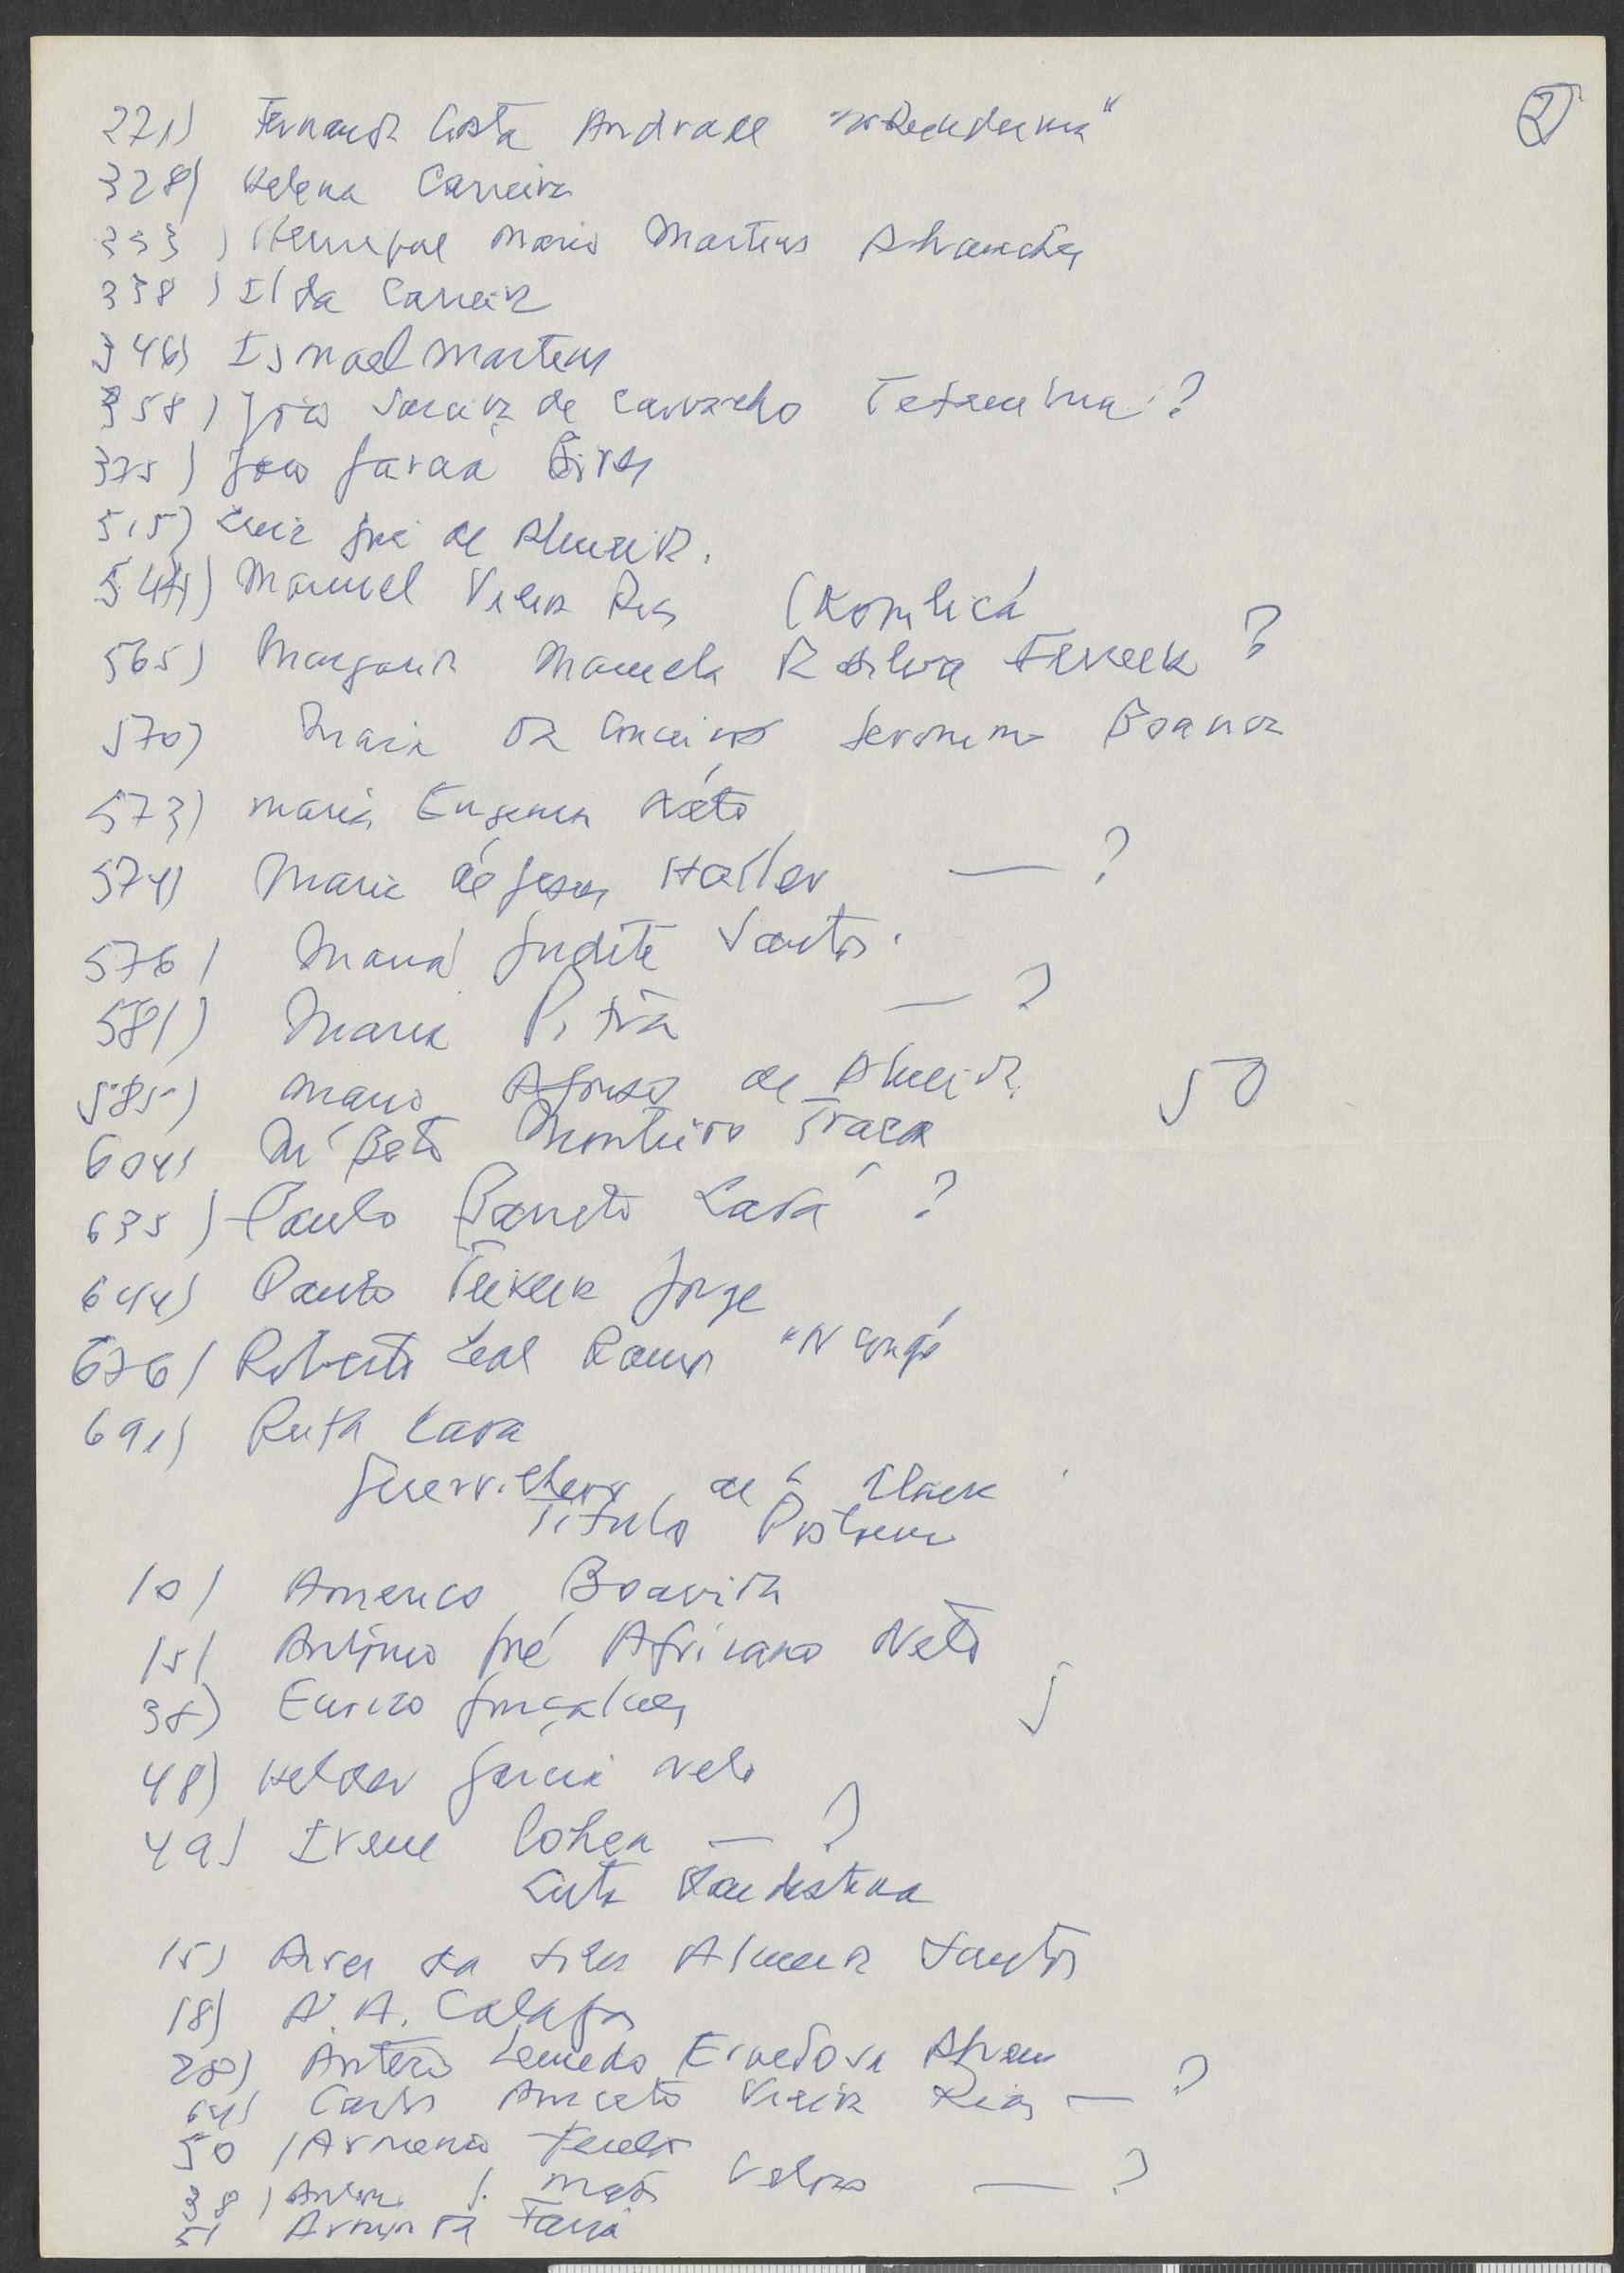 2
271) Fernando Costa Andrade "Ndunduma"
328) Helena Carreira
333) Henrique Mario Martins Abranches
338) Ilda Carreira
346) Ismael Martins
358) João Saraiva de Carvalho Tetembwa ?
375) João Garcia Bires
515) Luiz José de Almeida.
544) Manuel Vieira Dias (Kopelipa
565) Margarida Manuela da Silva ?
570) Maria da Conceição Jeronimo Boavida
573) Maria Eugenia Néto
574) Maria de Jesus Haller — ?
576) Maria Judite Santos.
581) Maria Pitra — ?
585) Mario Afonso de Almeida 50
604) Mº Beto Monteiro Traça
635) Paulo Barreto Lara ?
644) Paulo Teixeira Jorge
676) Roberto Leal Ramos "N'gongo
691) Ruth Lara
Guerrilhero de 1ª Classe
Titulo Postumo
10) Americo Boavida
15) António José Africano Neto
38) Eurico Gonçalves 5
48) Helder Garcia Neto
49) Irene Cohen — ?
Luta Clandestina
15) Aires da Silva Almeida Santos
18) A. A. Calafa
28) Antero Ervedosa Abreu
64) Carlos Aniceto Vieira Dias — ?
50) Armenio
38) Antonio J. Matos Veloso — ?
51 Arminda Faria